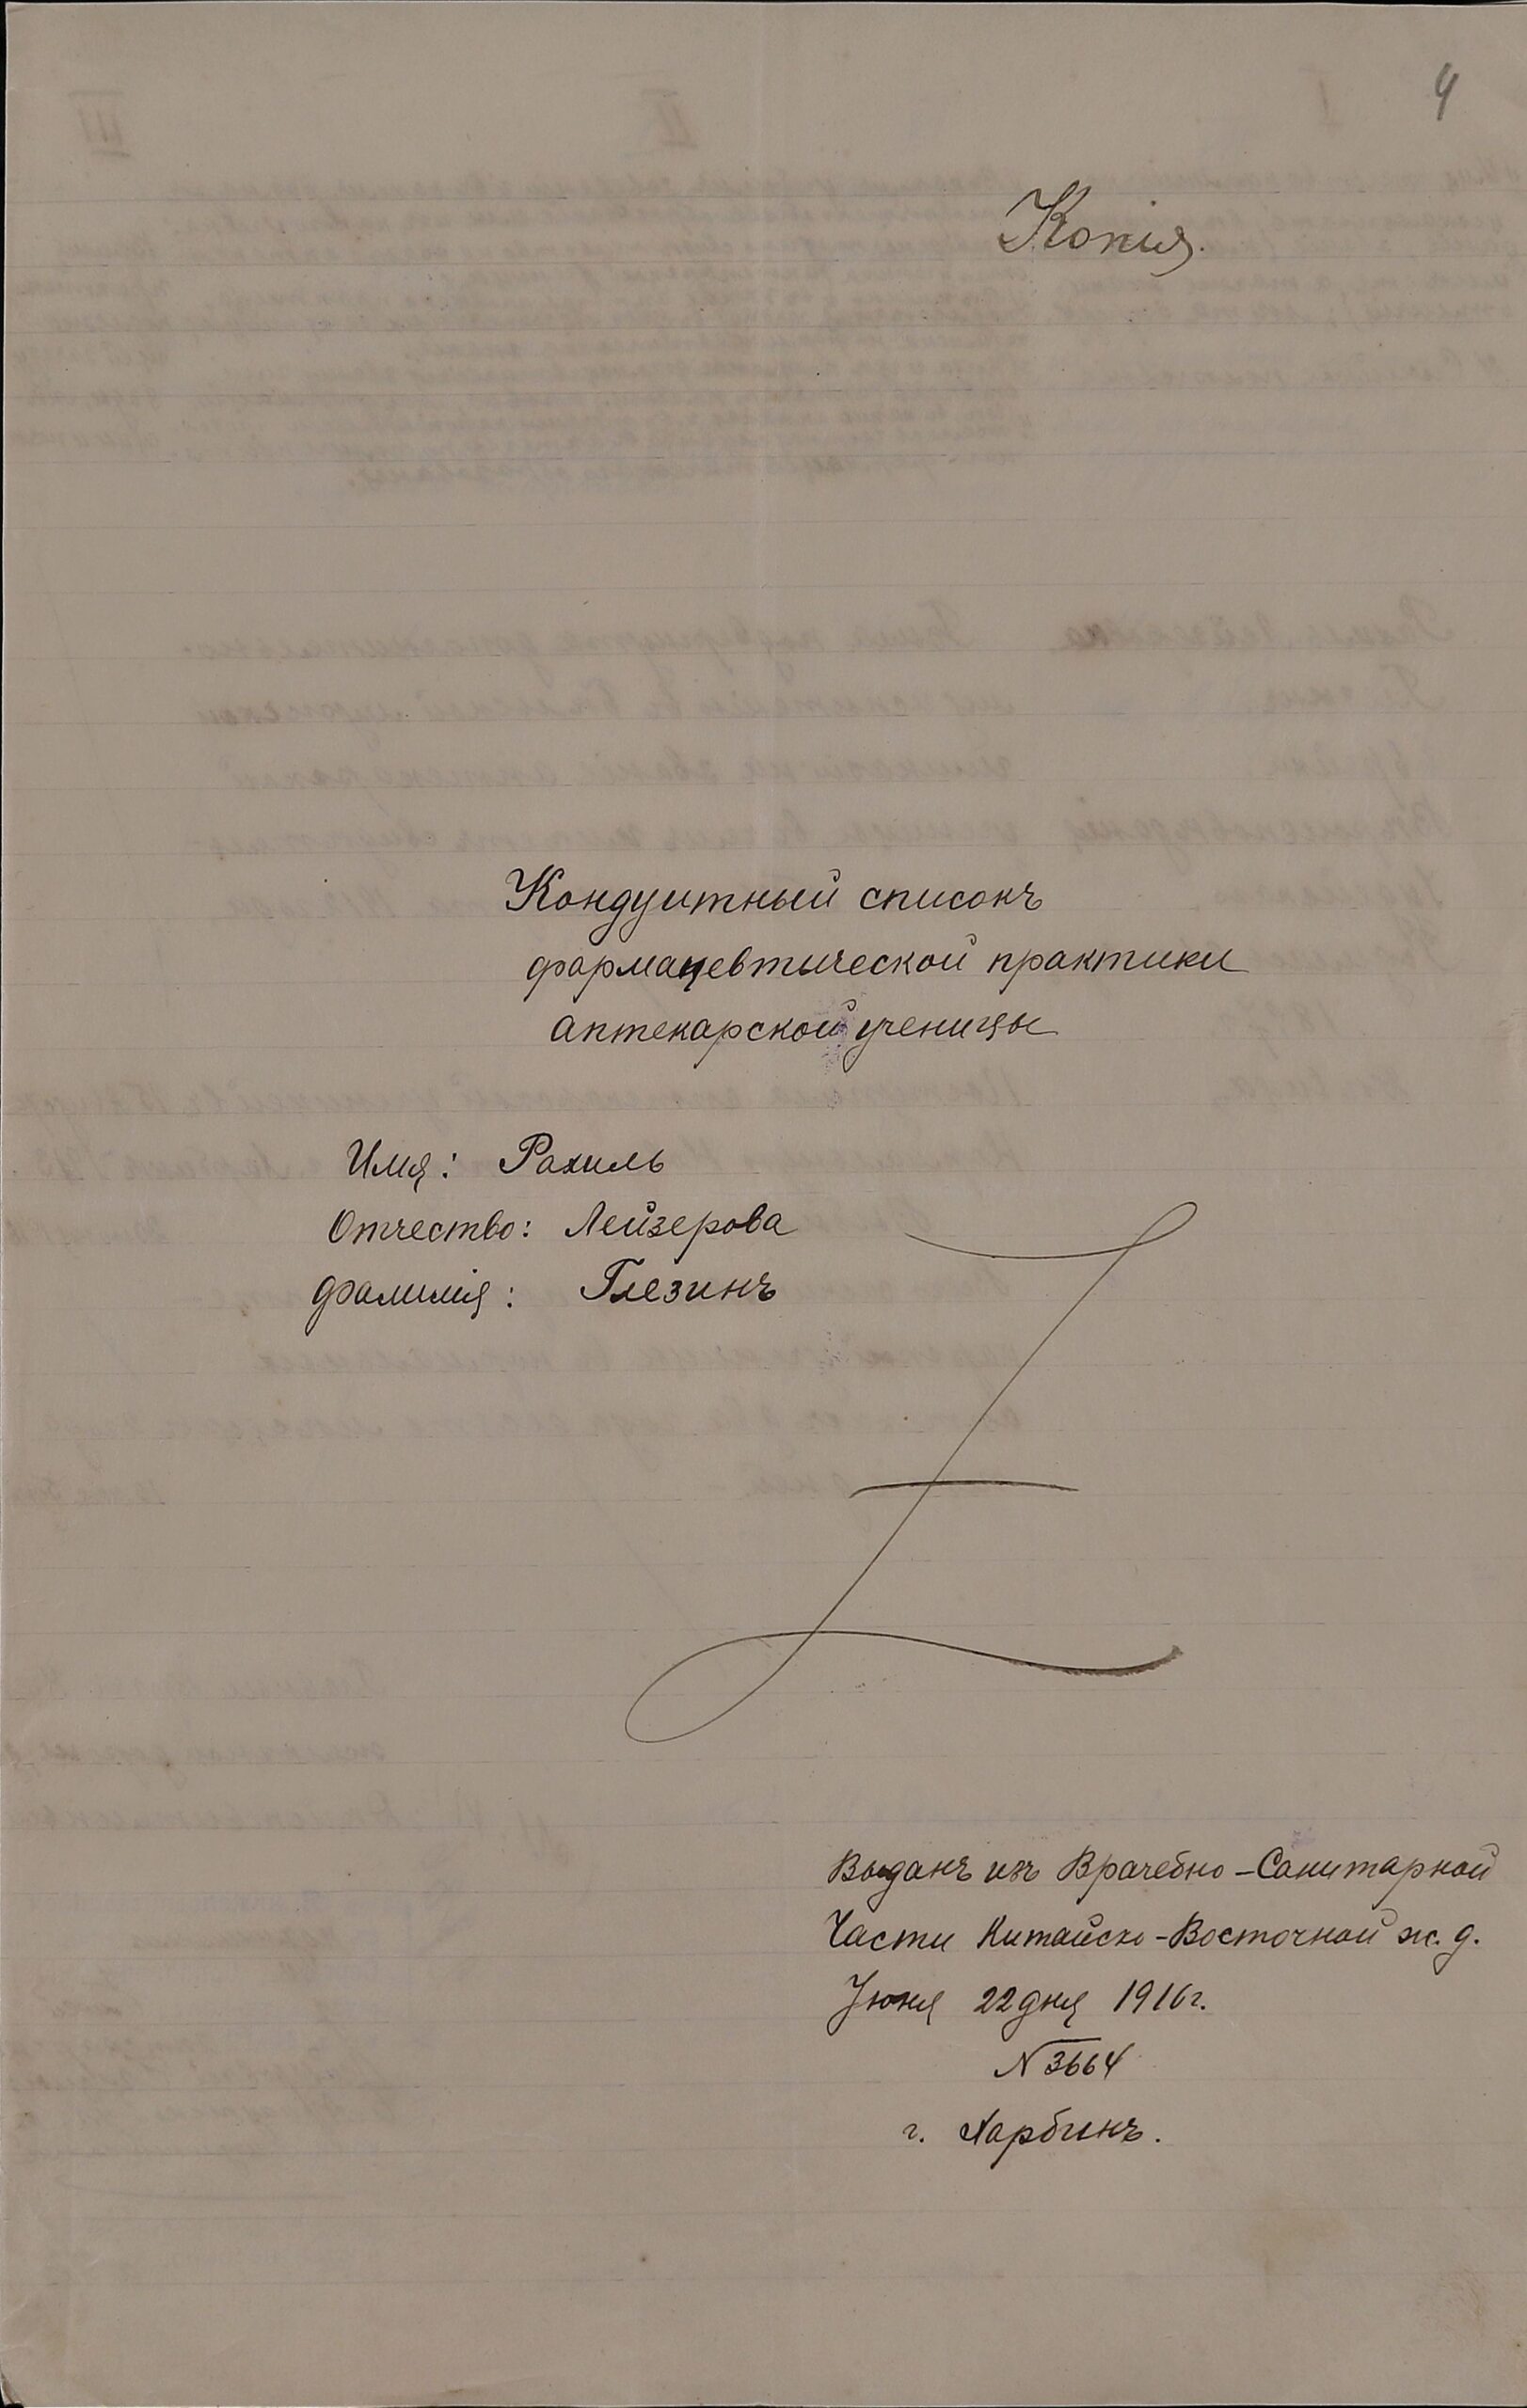 4
Копія.
Кондуитный списокъ
фармацевтической практики
аптекарской ученицы
Имя: Рахиль
Отчество: Лейзерова
Фамилія: Глезинъ
Выданъ изъ Врачебно-Санитарной
Части Китайско-Восточной ж. д.
Іюня 22 дня 1916 г.
N 3664
г. Харбинъ.